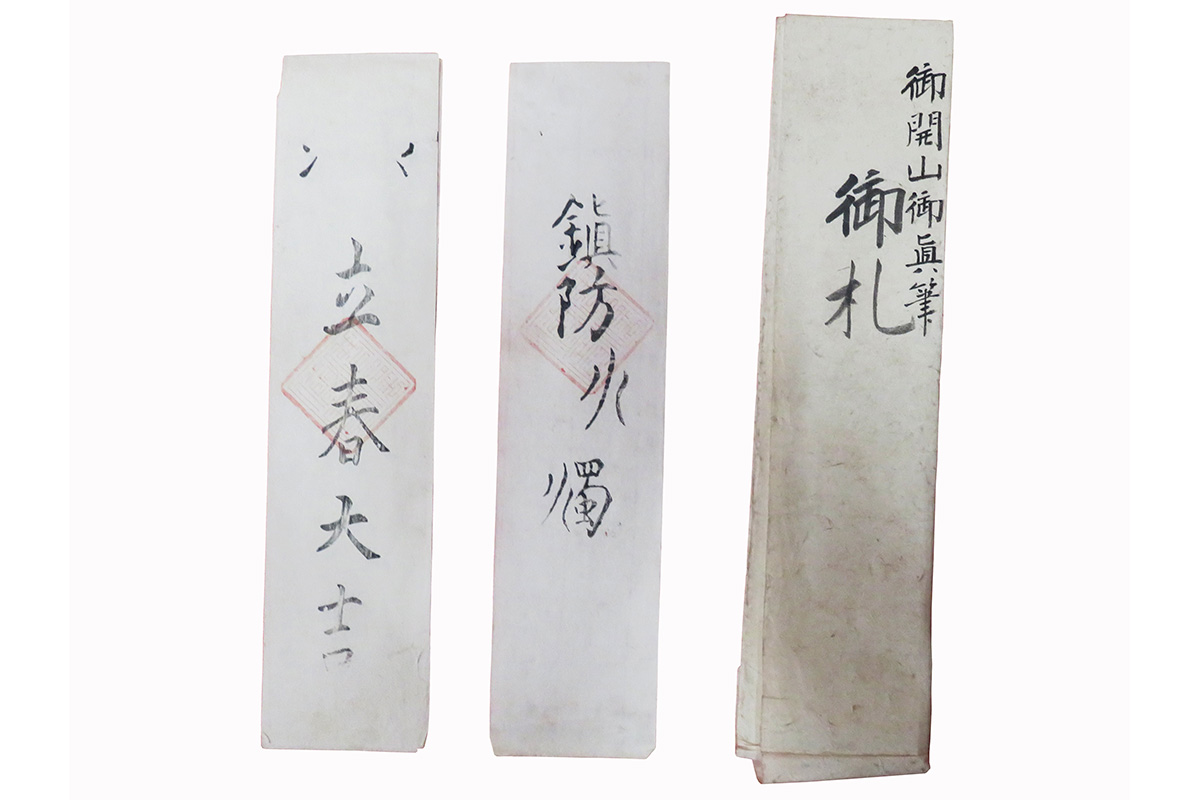 御開山御眞筆
御札
鎭防火燭
立春大吉